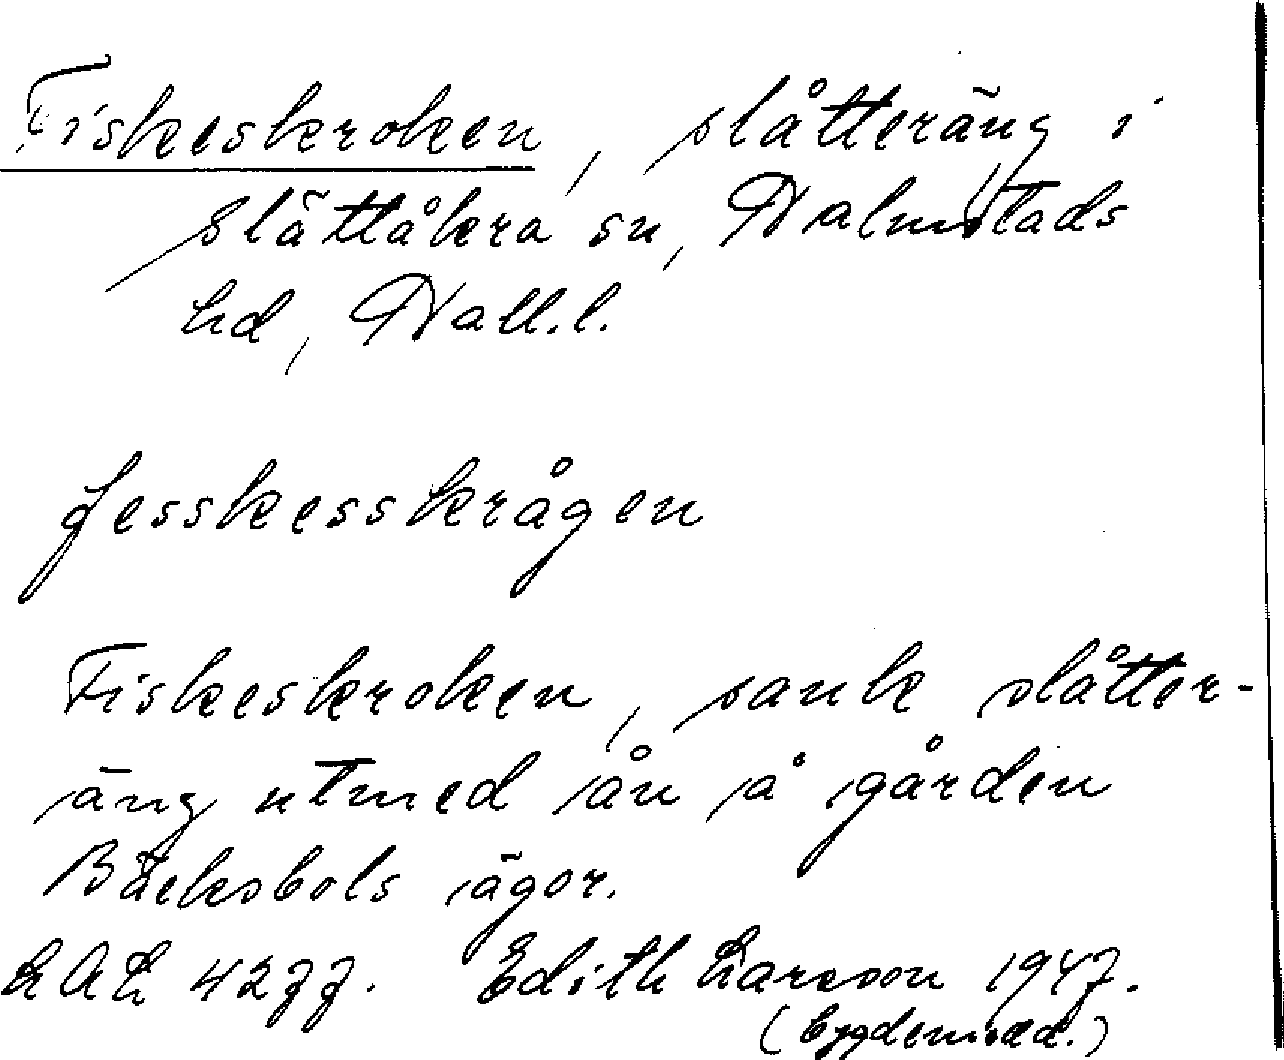 Fiskeskroken, slåtteräng i
Slättåkra sn, Halmstads
hd, Hall.l.
fesskesskrågen
Fiskeskroken, sank slåtter-
äng utmed ån å gården
Bäcksbols ägor.
LAL 4277. Edith Larsson 1947.
(bygdemedd.)